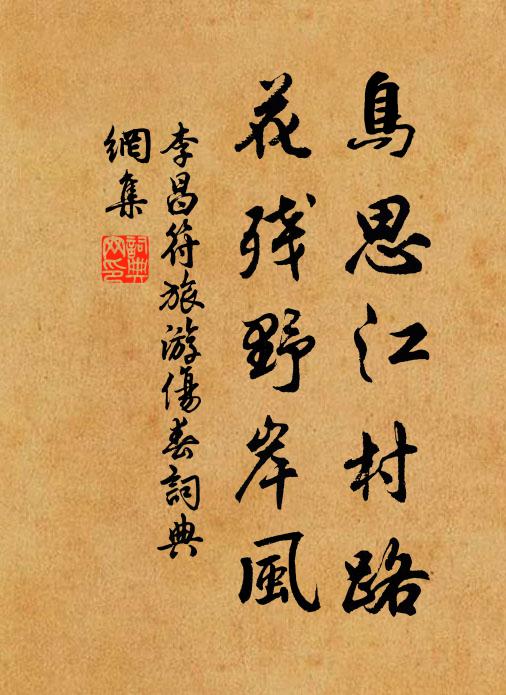 鳥思江村路
花残野岸風
李昌符旅游傷春詞典
網集
詞典网印